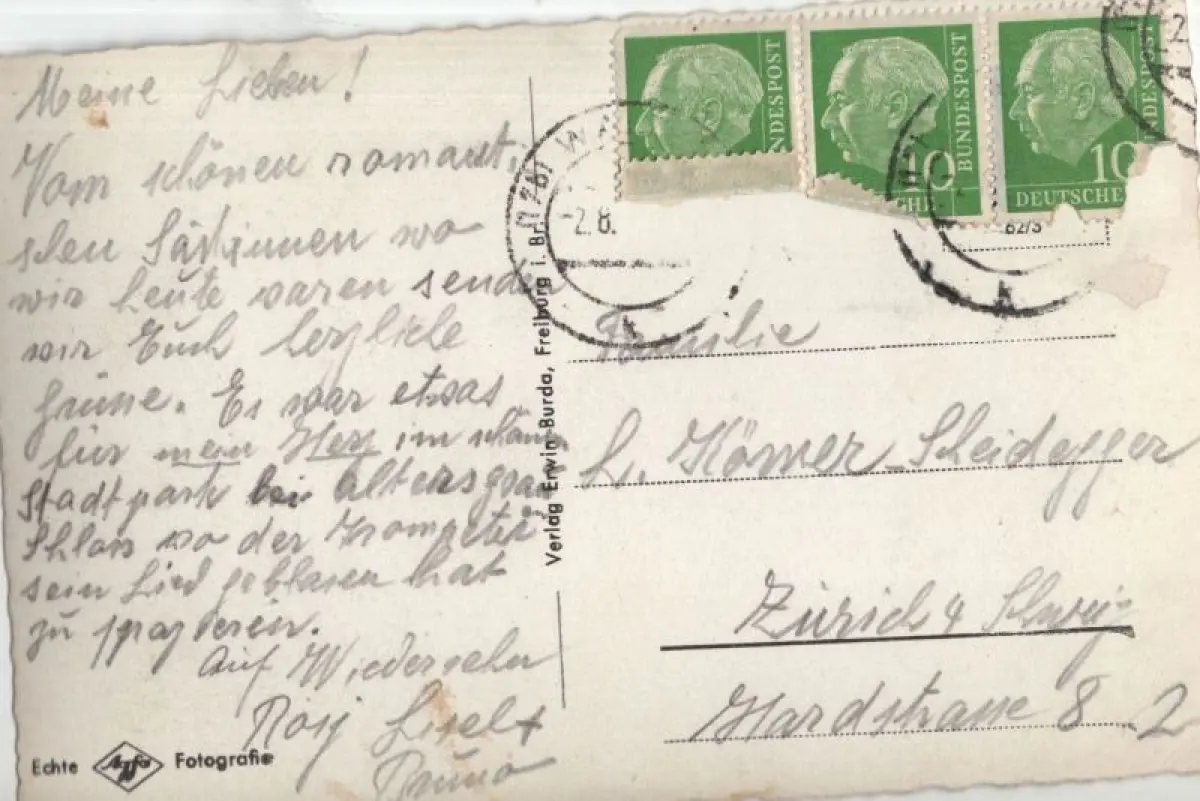 Meine Lieben!
Vom schönen romanti-
schen Säkkinnen wo
wir heute waren senden
wir Euch herzliche
Grüne. Es war etwas
für mein Herz im schönen
Stadtpark bei altersgrau
Schloss wo der Trompeter
sein Lied geblasen hat
zu spazieren.
Auf Wiedersehn
Rosj Lisel +
Bruno
Echte Agfa Fotografie
Verlag Erwin Burda, Freiburg i. Br.
(17b) W
-2.8.
NDESPOST
10
BUNDESPOST
GHL
10
DESPOST
DEUTSCHE
82/3
Familie
L. Körner-Scheidegger
Zürich 4 Schweiz
Hardstrasse 82